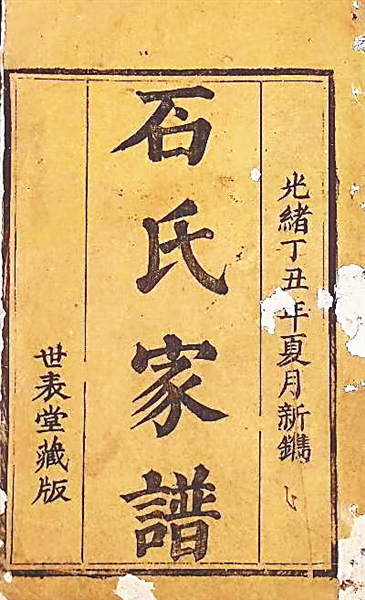 光緒丁丑年夏月新鐫
石氏家譜
世表堂藏版